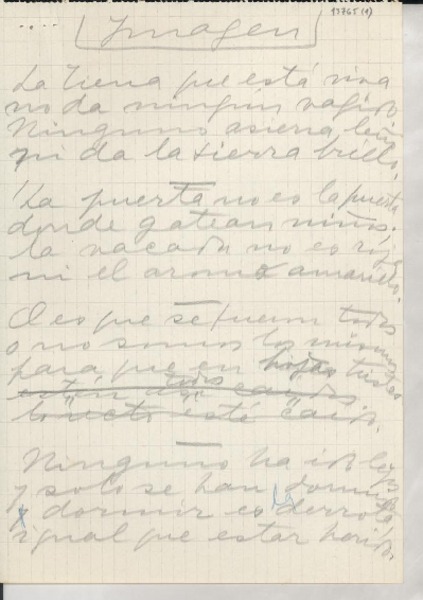 13765 (1)
Imagen
La tierra que está viva
no da ningún vagido
Ninguno asierra leño
ni da la sierra brillo,
La puerta no es la puerta
donde gatean niños,
la vacada no es roja
ni el aroma amarillo.
O es que se fueron todos
o no somos los mismos
para que en hojas tristes
están caídos
todos
esté caído.
Ninguno ha ido lejos
y solo se han dormido
y dormir es derrota
igual que estar herido,